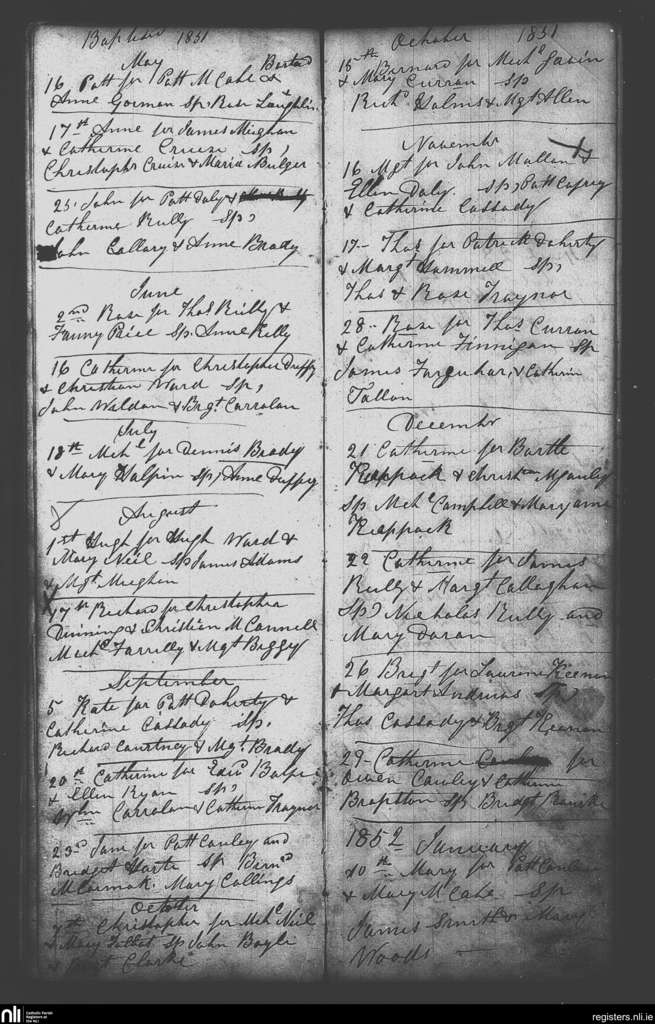 Baptism 1851
May
16 Patt for Patt McCabe & Bastard
Anne Gorman Sp, Rose Laughlin
17th Anne for James Meighan
& Catherine Cruise Sp,
Christophr Cruise & Maria Bulger
25, John for Patt Daly &
Catherine Rielly Sp,
John Callary & Anne Brady
June
2nd Rose for Thos Rielly &
Fanny Price Sp. Anne Kelly
16 Catherine for Christopher Duffy
& Christian Ward Sp,
John Waldon & Brgt Carrolan
July
18th Mich for Dennis Brady
& Mary Halpin Sp, Anne Duffy
August
1st Hugh for Hugh Ward &
Mary Neil Sp James Adams
& Mgt Meighan
17th Richard for Christopher
Dinning & Christian McConnell
Michl Farrelly & Mgt Biggy
September
5 Kate for Patt Doherty &
Catherine Cassady Sp,
Richard Courtney & Mgt Brady
20th Catherine for Edwd
& Ellen Ryan Sp,
Carrolan & Catherine Traynor
23rd Jane for Patt Cawley and
Bridget Harte Sp Bernd
McCormak. Mary Collings
October
7th Christopher for Michl Neil
& Mary Talbot Sp John Boyle
& Clarke
October 1851
15th Bernard for Michl Gavin
& Mary Curran Sp
Richd Holms & Mgt Allen
November
16 Mgt for John Mallon &
Ellen Daly. Sp, Patt Cafrey
& Catherine Cassady
17- Thos for Patrick Doherty
& Margt Hammill Sp,
Thos & Rose Traynor
28- Rose for Thos Curran
& Catherine Finnigan Sp
James Farquhar, & Catherin
Fallon
December
21 Catherine for Bartle
Keappock & Christian McGauley
Sp Michl Campbell & Mary anne
Keappock
22 Catherine for James
Rielly & Margt Callaghan
Sp, Nicholas Rielly and
Mary Doran
26 Bridgt for Laurence Keenan
& Margart Andrews Sp,
Thos Cassady & Brgt Keenan
29- Catherine for
Owen Cawley & Catherine
Brapston Sp Bridgt
1852 January
10th Mary for Patt
& Mary McCabe Sp
James Smith & Mary
Woods
nli
Catholic Parish
Registers at
the NLI
registers.nli.ie